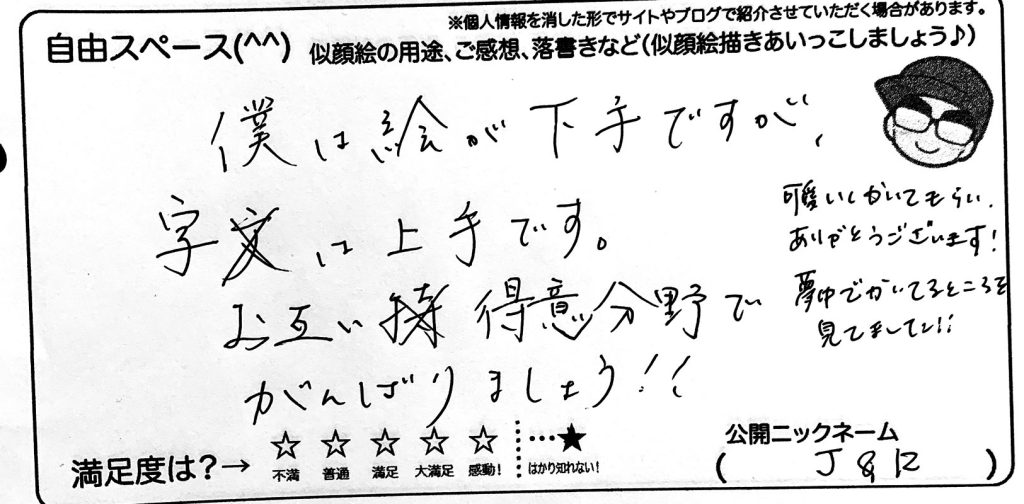 ※個人情報を消した形でサイトやブログで紹介させていただく場合があります。
自由スペース(^^) 似顔絵の用途、ご感想、落書きなど(似顔絵描きあいっこしましょう♪)
僕は絵が下手ですが、
字は上手です。
お互い得意分野で
がんばりましょう!!
可愛いくかいてもらい、
ありがとうございます!
夢中でかいてるところを
見てました!!
満足度は?→ ☆ ☆ ☆ ☆ ☆ …★
不満 普通 満足 大満足 感動! はかり知れない!
公開ニックネーム
( J & R )